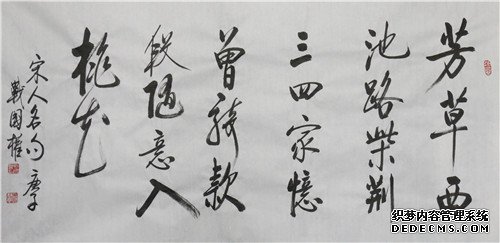 芳草西
池路柴荆
三四家憶
曾騎款
段隨意入
桃花
宋人名句 庚子
戴國權
织梦内容管理系统
DEDECMS.COM